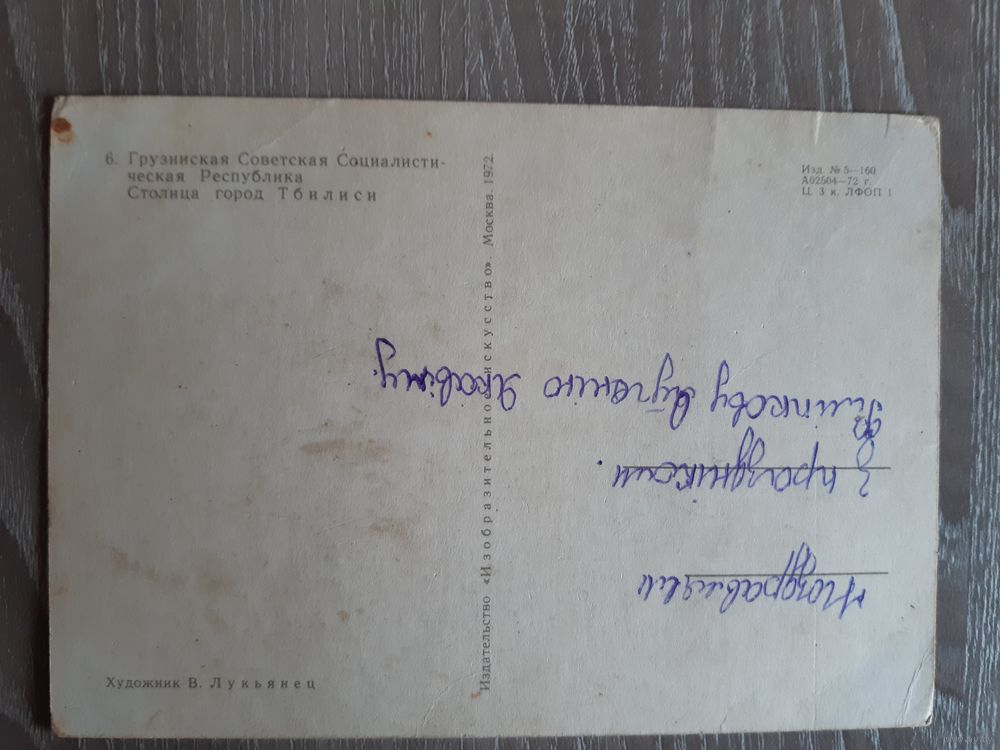 6. Грузинская Советская Социалисти-
ческая Республика
Столица город Тбилиси
Художник В. Лукьянец
Издательство «Изобразительное искусство». Москва. 1972.
Изд. № 5—160
А02504—72 г.
Ц. 3 к. ЛФОП 1
Поздравляем
З праздніком.